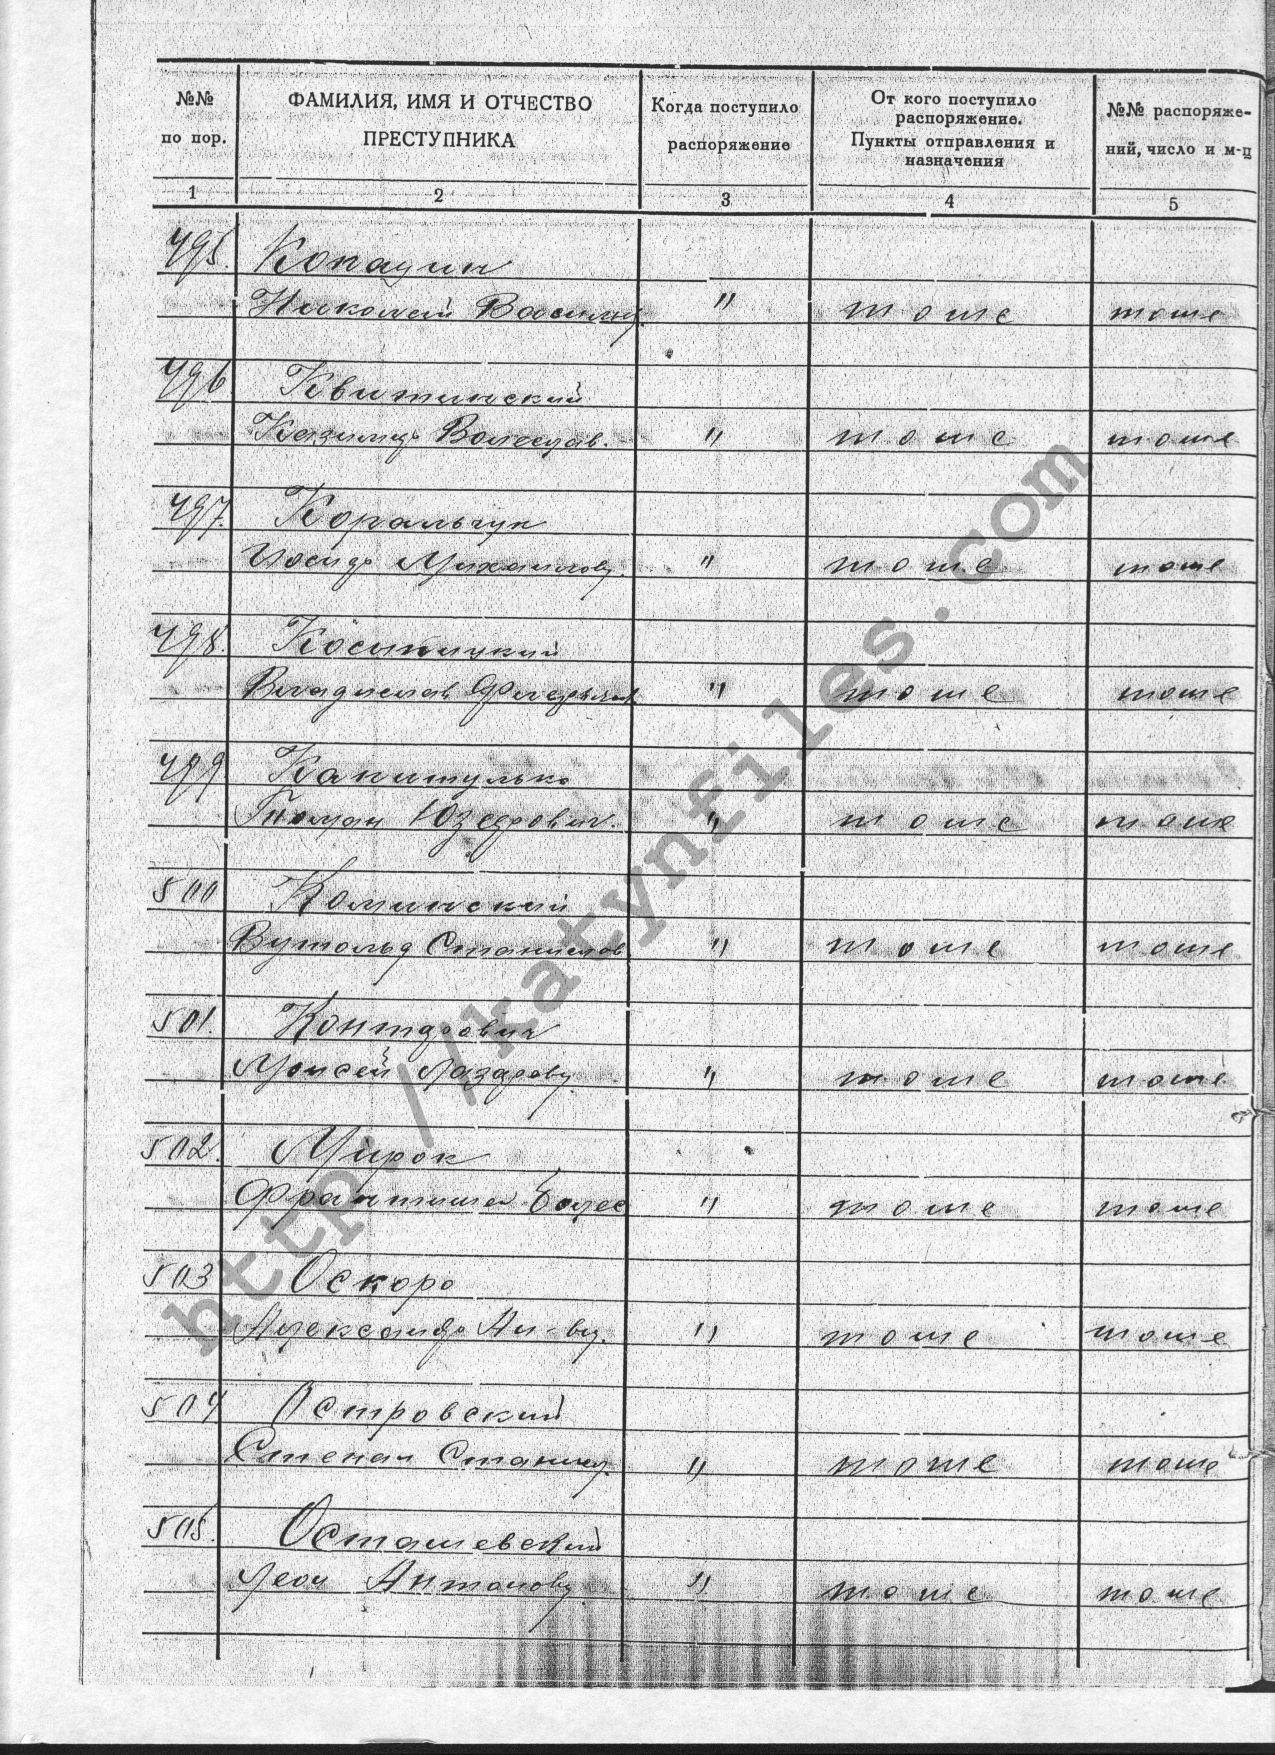 №№ по пор.
ФАМИЛИЯ, ИМЯ И ОТЧЕСТВО ПРЕСТУПНИКА
Когда поступило распоряжение
От кого поступило распоряжение. Пункты отправления и назначения
№№ распоряже-ний, число и м-ц
1 2 3 4 5
495. Копадин
Николай " тоже тоже
496 Квитинский
Казимир Болеслав. " тоже тоже
497. Коральчук
Иосиф Михайлов. " тоже тоже
498
Владислав " тоже тоже
499 Капитулько
Роман Юзефович. " тоже тоже
500 Коминский
Витольд Станислав " тоже тоже
501. Контарович
Моисей Лазарев. " тоже тоже
502. Мирок
Франтишек Болес " тоже тоже
503 Оскоро
Александр Ал-вич. " тоже тоже
504 Островский
Степан Станисл. " тоже тоже
505. Осташевский
Леон Антонов " тоже тоже
http://katynfiles.com